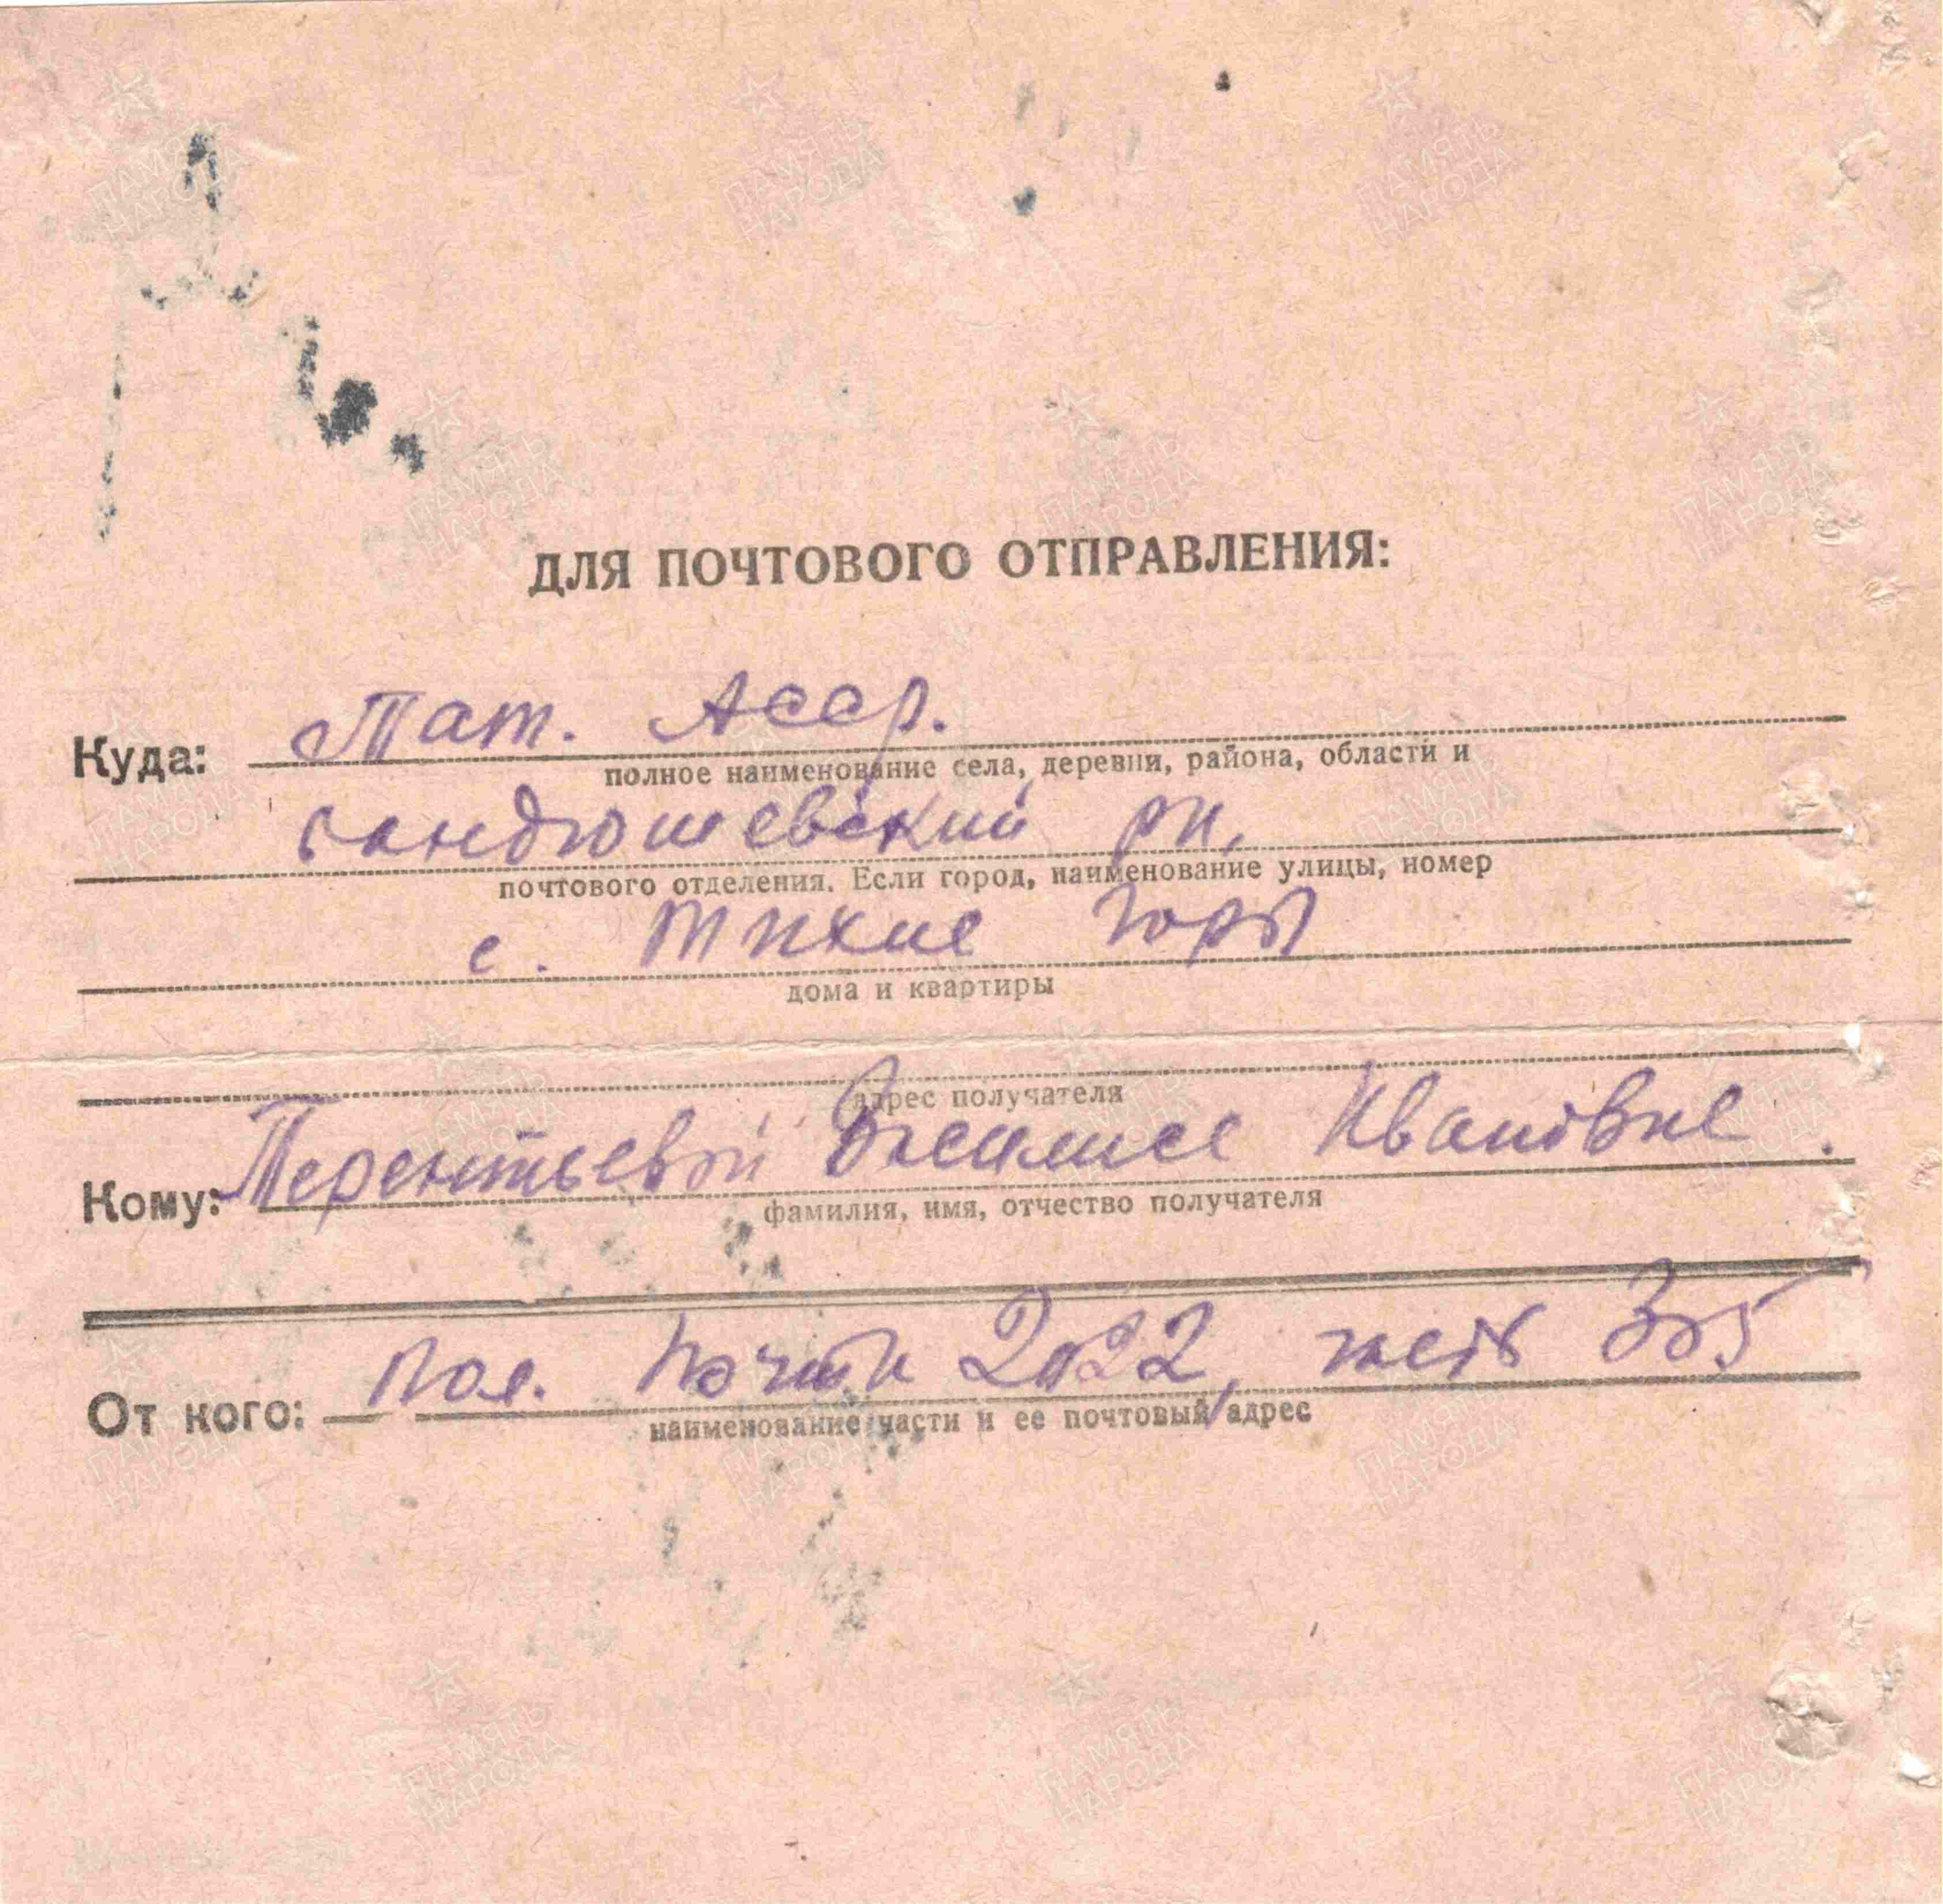 ДЛЯ ПОЧТОВОГО ОТПРАВЛЕНИЯ:
Куда: Тат. Асср.
полное наименование села, деревни, района, области и
бондюшевский рн,
почтового отделения. Если город, наименование улицы, номер
с. Тихие Горы
дома и квартиры
адрес получателя
Кому: Терентьевой Василисе Ивановне.
фамилия, имя, отчество получателя
От кого: Пол. Почта 2022, часть 305
наименование части и ее почтовый адрес
ПАМЯТЬ НАРОДА